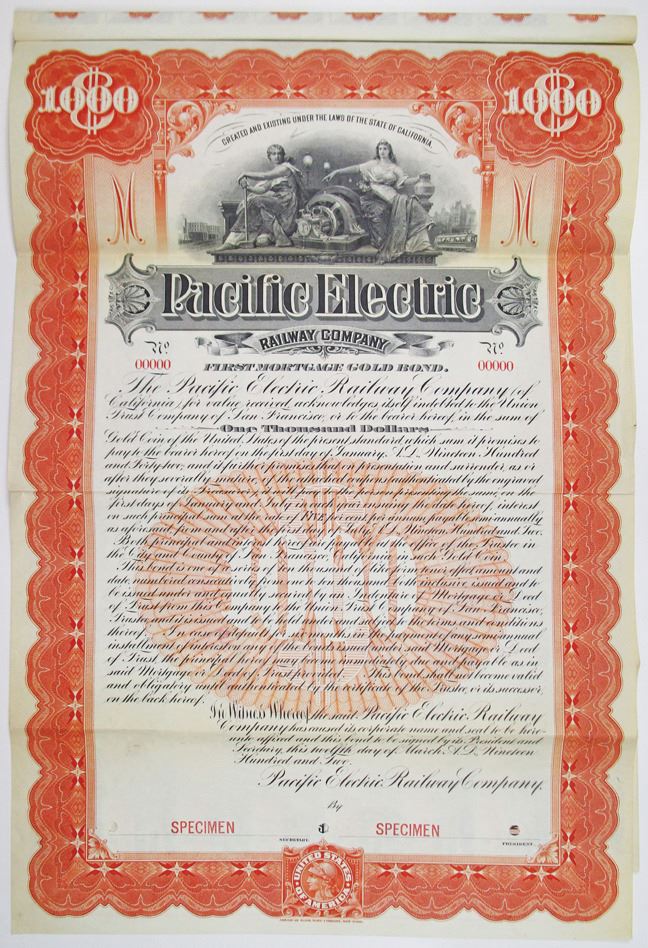 1000 1000
CREATED AND EXISTING UNDER THE LAWS OF THE STATE OF CALIFORNIA
M M
Pacific Electric
RAILWAY COMPANY
No No
00000 00000
FIRST MORTGAGE GOLD BOND.
The Pacific Electric Railway Company (of
California) for value received acknowledges itself indebted to the Union
Trust Company of San Francisco, or to the bearer hereof, in the sum of
One Thousand Dollars
Gold Coin of the United States of the present standard, which sum it promises to
pay to the bearer hereof on the first day of January, A.D. Nineteen Hundred
and Forty-two; and it further promises that on presentation and surrender, as or
after they severally mature, of the attached coupons, authenticated by the engraved
signature of its Treasurer, it will pay to the person presenting the same, on the
first days of January and July in each year ensuing the date hereof, interest
on such principal sum at the rate of FIVE per cent per annum, payable semi-annually
as aforesaid, from and after the first day of January, A.D. Nineteen Hundred and Two.
Both principal and interest hereof are payable at the office of the Trustee in
the City and County of San Francisco, California, in such Gold Coin.
This bond is one of a series of ten thousand bonds of like tenor, effect, amount and
date, numbered consecutively from one to ten thousand, both inclusive, issued and to
be issued under and equally secured by an Indenture of Mortgage or Deed
of Trust from this Company to the Union Trust Company of San Francisco,
Trustee, and it is issued and held subject to the terms and conditions
thereof. In case of default in the payment of any semi-annual
installment of interest on any of the bonds issued under said Mortgage or Deed
of Trust the principal hereof may become immediately due and payable as in
said Mortgage or Deed of Trust provided. This bond shall not become valid
and obligatory until authenticated by the certificate of the Trustee, or its successor,
on the back hereof.
1000
In Witness Whereof the said Pacific Electric Railway
Company has caused its corporate name and seal to be here-
unto affixed and this bond to be signed by its President and
Secretary, this twelfth day of March A.D. Nineteen
Hundred and Two.
Pacific Electric Railway Company.
By
SPECIMEN SPECIMEN
SECRETARY. PRESIDENT.
UNITED STATES
OF AMERICA